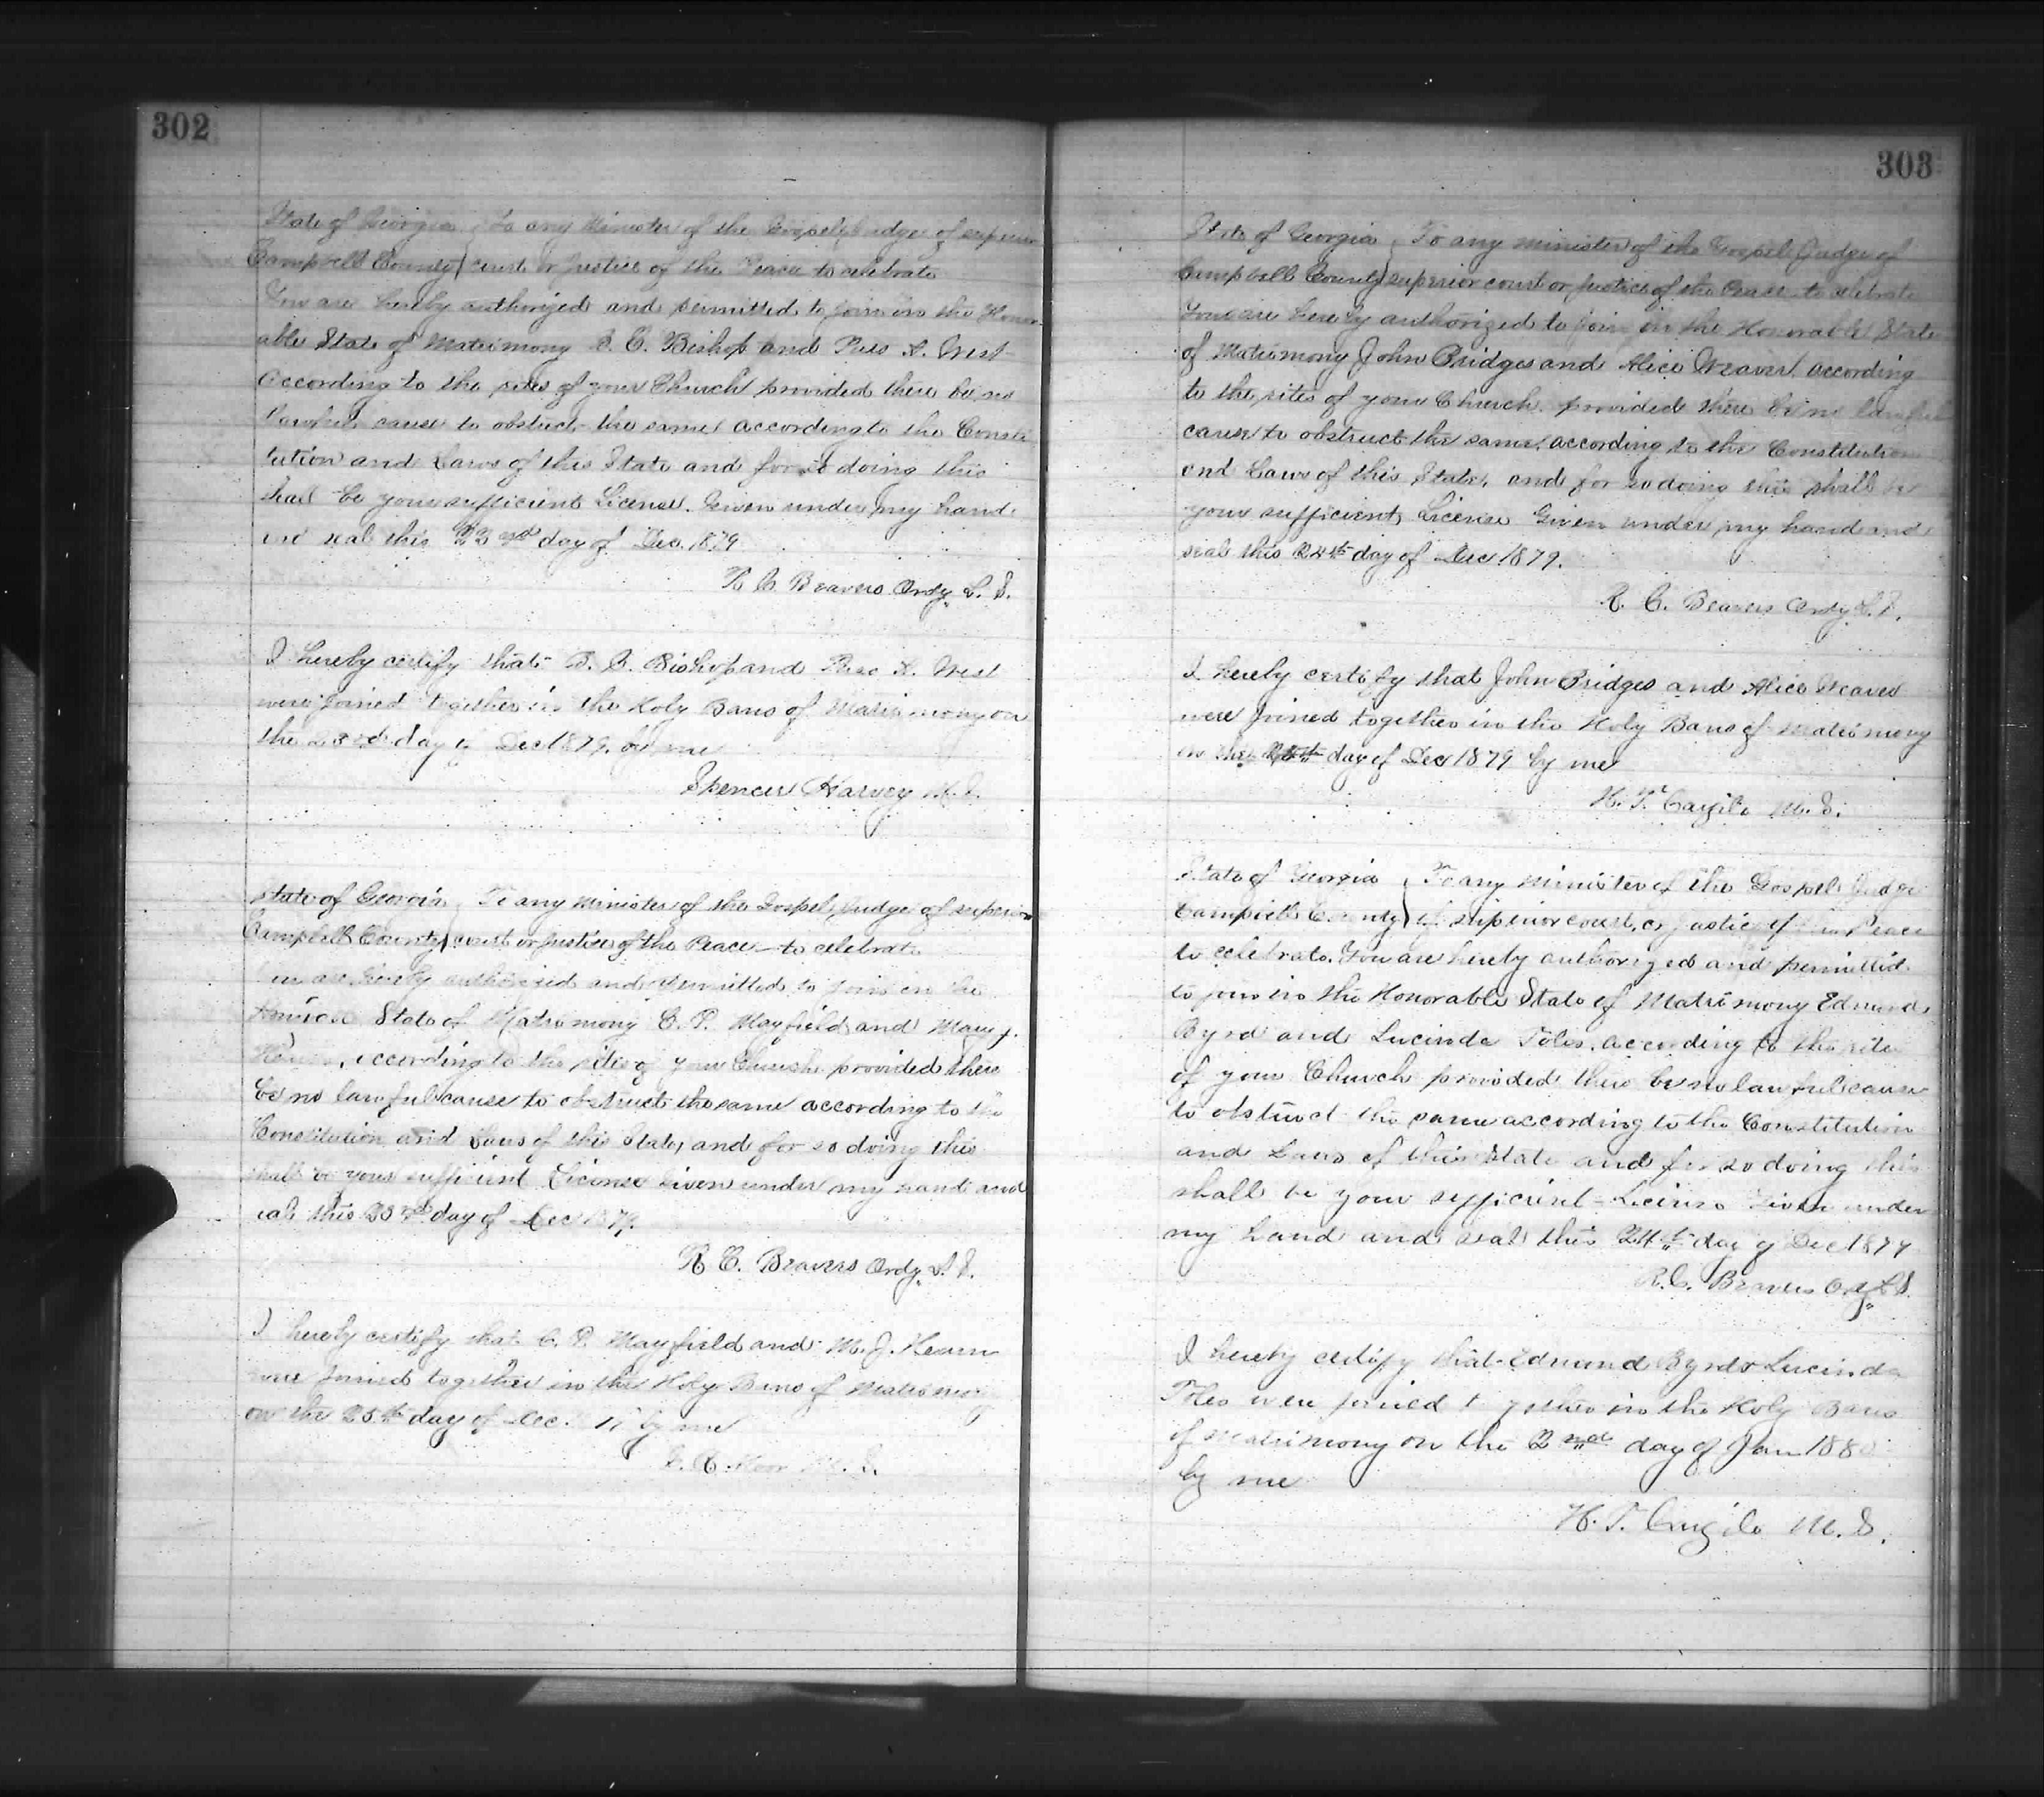 302
State of Georgia } To any Minister of the Gospel, Judge of superior
Campbell County } court or Justice of the Peace to celebrate
You are hereby authorized and permitted to join in the Honor-
able State of Matrimony C. Bishop and A. West
according to the rites of your Church provided there be no
lawful cause to obstruct the same according to the Consti
tution and Laws of this State and for so doing this
shall be your sufficient License. Given under my hand
and seal this 23rd day of Dec. 1879
R C Beavers Ordy. L. S.
I hereby certify that Bishop and A. West
were joined together in the Holy Bans of Matrimony on
the 23rd day of Dec 1879. by me
Spencer Harvey M. G.
State of Georgia } To any Minister of the Gospel, Judge of superior
Campbell County } court or Justice of the Peace to celebrate
You are hereby authorized and permitted to join in the
State of Matrimony C. P. Mayfield and Mary J.
Hearn, according to the rites of your Church provided there
be no lawful cause to obstruct the same according to the
Constitution and Laws of this State, and for so doing this
shall be your sufficient License Given under my hand and
seal this 23rd day of Dec 1879.
R C. Beavers Ordy. L. S.
I hereby certify that C. P. Mayfield and M. J. Hearn
were joined together in the Holy Bans of Matrimony
on the 25th day of Dec. by me
303
State of Georgia } To any minister of the Gospel Judge of
Campbell County } superior court or Justice of the Peace to celebrate
You are hereby authorized to join in the Honorable State
of Matrimony John Bridges and Alice Weaver, according
to the rites of your Church. provided there be no lawful
cause to obstruct the same, according to the Constitution
and Laws of this State, and for so doing this shall be
your sufficient License Given under my hand and
seal this 24th day of Dec 1879.
R. C. Beavers Ordy L. S.
I hereby certify that John Bridges and Alice Weaver
were joined together in the Holy Bans of Matrimony
on the day of Dec 1879 by me
H. T. Cargile M. G.
State of Georgia } To any Minister of the Gospel Judge
Campbell County } of superior court, or Justice of the Peace
to celebrate. You are hereby authorized and permitted
to join in the Honorable State of Matrimony Edmund
Byrd and Lucinda Toles, according to the rites
of your Church provided there be no lawful cause
to obstruct the same according to the Constitution
and Laws of this State and for so doing this
shall be your sufficient License Given under
my hand and seal this 24th day of Dec 1879
R. C. Beavers Ordy L S.
I hereby certify that Edmund Byrd & Lucinda
Toles were joined together in the Holy Bans
of Matrimony on the 2nd day of Jan 1880
by me
H. T. Cargile M. G.